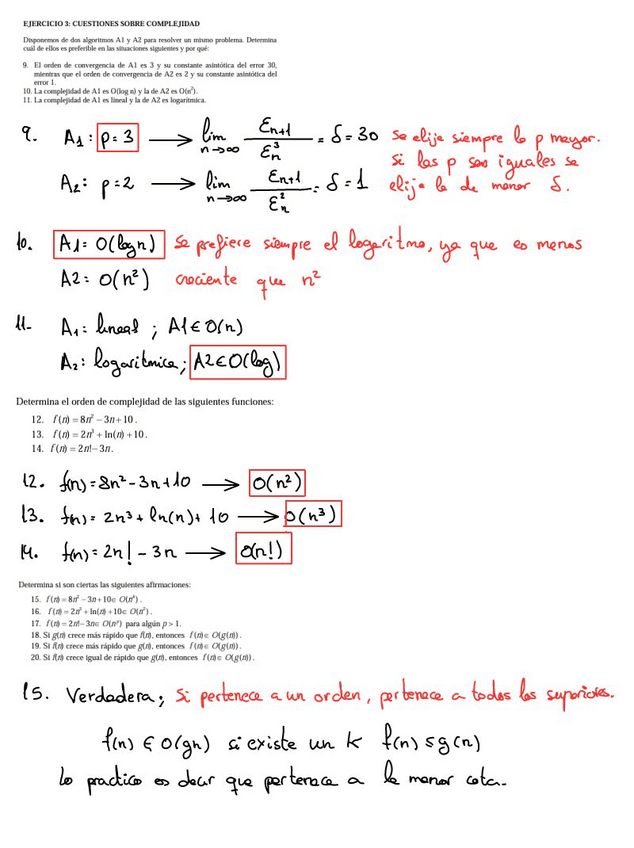 EJERCICIO 3: CUESTIONES SOBRE COMPLEJIDAD
Disponemos de dos algoritmos A1 y A2 para resolver un mismo problema. Determina
cuál de ellos es preferible en las situaciones siguientes y por qué:
9. El orden de convergencia de A1 es 3 y su constante asintótica del error 30,
mientras que el orden de convergencia de A2 es 2 y su constante asintótica del
error 1.
10. La complejidad de A1 es O(log n) y la de A2 es O(n²).
11. La complejidad de A1 es lineal y la de A2 es logarítmica.
9. A₁: p=3 → lim n→∞ εn+1 / εn³ = δ = 30 Se elije siempre la p mayor.
si las p son iguales se
A₂: p=2 → lim n→∞ εn+1 / εn² = δ = 1 elije la de menor δ.
10. A1= O(log n) Se prefiere siempre el logaritmo, ya que es menos
A2= O(n²) creciente que n²
11- A₁: lineal ; A1 ∈ O(n)
A₂: logaritmica; A2 ∈ O(log)
Determina el orden de complejidad de las siguientes funciones:
12. f(n) = 8n² − 3n + 10 .
13. f(n) = 2n³ + ln(n) + 10 .
14. f(n) = 2n! − 3n .
12. f(n) = 8n² - 3n + 10 → O(n²)
13. f(n) = 2n³ + ln(n) + 10 → O(n³)
14. f(n) = 2n! - 3n → O(n!)
Determina si son ciertas las siguientes afirmaciones:
15. f(n) = 8n² − 3n + 10 ∈ O(n⁴) .
16. f(n) = 2n³ + ln(n) + 10 ∈ O(n²) .
17. f(n) = 2n! − 3n ∈ O(nᵖ) para algún p > 1.
18. Si g(n) crece más rápido que f(n), entonces f(n) ∈ O(g(n)) .
19. Si f(n) crece más rápido que g(n), entonces f(n) ∈ O(g(n)) .
20. Si f(n) crece igual de rápido que g(n), entonces f(n) ∈ O(g(n)) .
15. Verdadera; Si pertenece a un orden, pertenece a todos los superiores.
f(n) ∈ O(gn) si existe un k f(n) ≤ g(n)
lo practico es decir que pertenece a la menor cota.